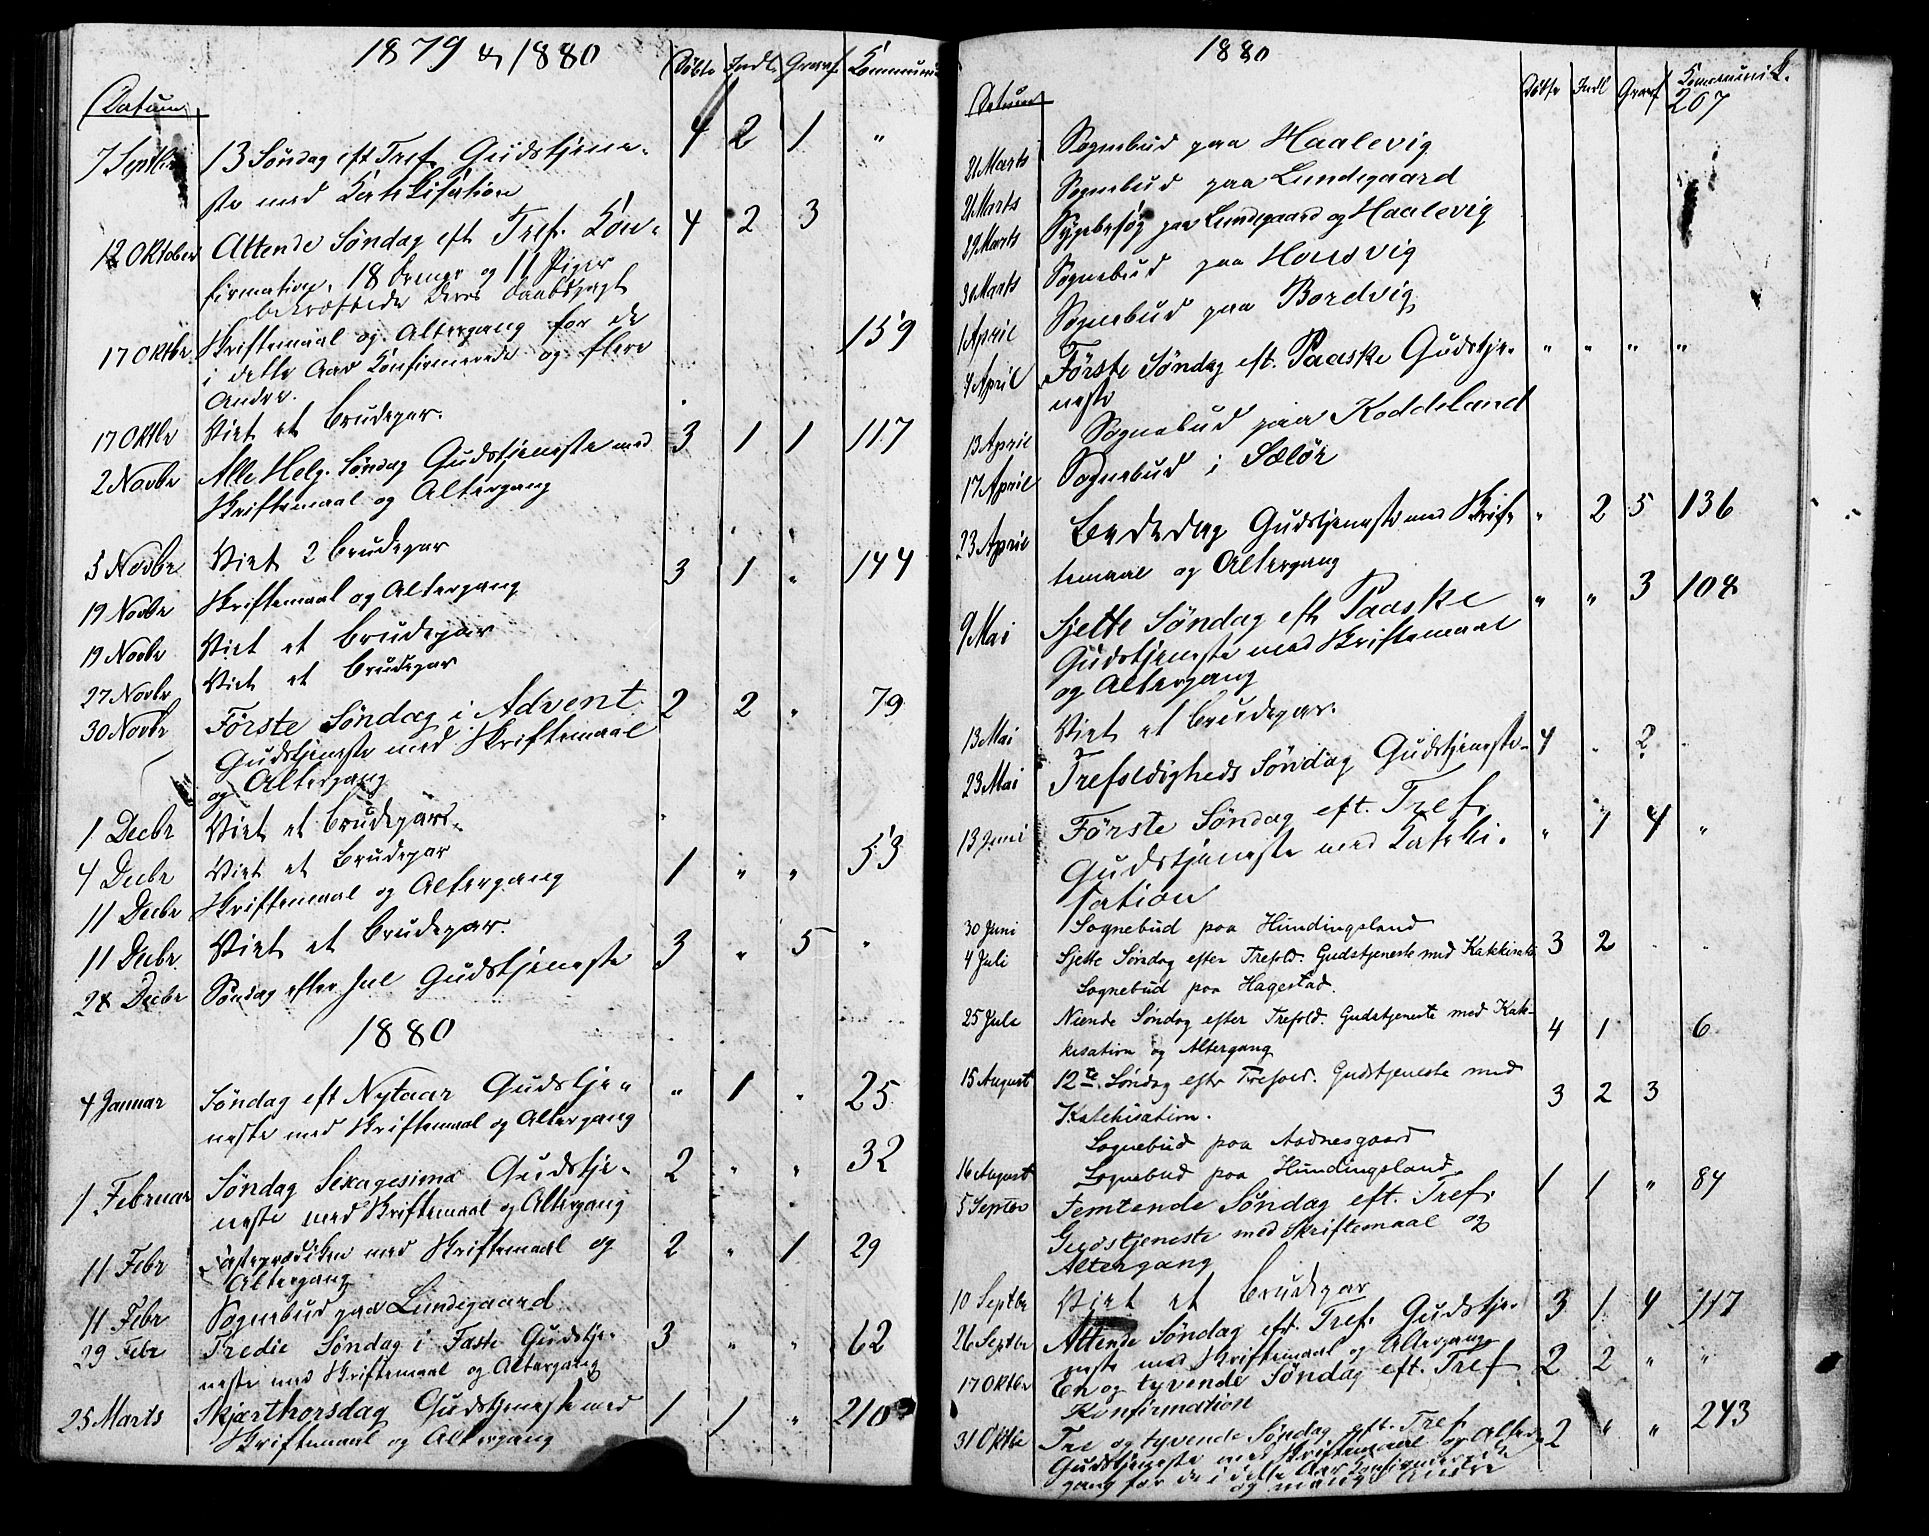 1879 & 1880
Datum Döbte Indl. Gravf. Communic
7 Septbr 13 Söndag eft Tref. Gudstjene- 4 2 1 "
ste med Katekisation
12 Oktober Attende Söndag eft Tref. Kon- 4 2 3
firmation, 18 Drenge og 11 Piger
bekræftede deres Daabspagt
17 Oktbr Skriftemaal og Altergang for de 159
i dette Aar Konfirmerede og flere
Andre.
17 Oktbr Viet et Brudepar.
2 Novbr Alle Helg. Söndag Gudstjeneste med 3 1 1 117
Skriftemaal og Altergang
5 Novbr Viet 2 Brudepar
19 Novbr Skriftemaal og Altergang 3 1 " 144
19 Novbr Viet et Brudepar
27 Novbr Viet et Brudepar
30 Novbr Første Søndag i Advent 2 2 " 79
Gudstjeneste med Skriftemaal
og Altergang
1 Decbr Viet et Brudepar.
4 Decbr Viet et Brudepar
11 Decbr Skriftemaal og Altergang 1 " " 53
11 Decbr. Viet et Brudepar.
28 Decbr Söndag efter Jul Gudstjeneste 3 " 5 "
1880
4 Januar Søndag eft Nytaar Gudstje- " 1 " 25
neste med Skriftemaal og Altergang
1 Februar Søndag Sexagesima Gudstje- 2 " " 32
neste med Skriftemaal og Altergang
11 Febr Fasteprædiken med Skriftemaal og 2 " 1 29
Altergang
11 Febr Sognebud paa Lundegaard
29 Febr Tredie Søndag i Faste Gudstje- 3 " " 62
neste med Skriftemaal og Altergang
25 Marts Skjærthorsdag Gudstjeneste med 1 1 " 210
Skriftemaal og Altergang
1880
Datum Döbte Indl Gravf Communik.
207
21 Marts Sognebud paa Haalevig
21 Marts Sognebud paa Lundegaard
29 Marts Sygebesøg paa Lundegaard og Haalevig
31 Marts Sognebud paa Housvig
1 April Sognebud paa Bordvig
4 April Første Søndag eft. Paaske Gudstje- " " " "
neste
13 April Sognebud paa Koddeland
17 April Sognebud i Sælör
23 April Bededag Gudstjeneste med Skrif- " 2 5 136
temaal og Altergang
9 Mai Sjette Søndag eft Paaske " " 3 108
Gudstjeneste med Skriftemaal
og Altergang
13 Mai Viet et Brudepar.
23 Mai Trefoldigheds Søndag Gudstjeneste 4 " 2 "
13 Juni Første Søndag eft. Tref. " 1 4 "
Gudstjeneste med Kateki-
sation
30 Juni Sognebud paa Hundingsland
4 Juli Sjette Søndag efter Trefold. Gudstjeneste med Katekisati 3 2
Sognebud paa Hagestad.
25 Juli Niende Søndag efter Trefold. Gudstjeneste med Kate- 4 1 6
kisation og Altergang
15 August 12te Søndag efter Trefold. Gudstjeneste med 3 2 3
Katekisation.
Sognebud paa Aadnesgaard
16 August Sognebud paa Hundingsland
5 Septbr Femtende Søndag eft. Tref. 1 1 " 84
Gudstjeneste med Skriftemaal og
Altergang
10 Septbr Viet et Brudepar
26 Septbr Attende Søndag eft. Tref. Gudstje- 3 1 4 117
neste med Skriftemaal og Altergang
17 Oktbr En og tyvende Søndag eft. Tref 2 2 " "
Konfirmation
31 Oktbr Tre og tyvende Søndag eft. Tref 2 " " 243
Gudstjeneste med Skriftemaal og Alter-
gang for de i dette Aar Konfirmerede
og mange Andre